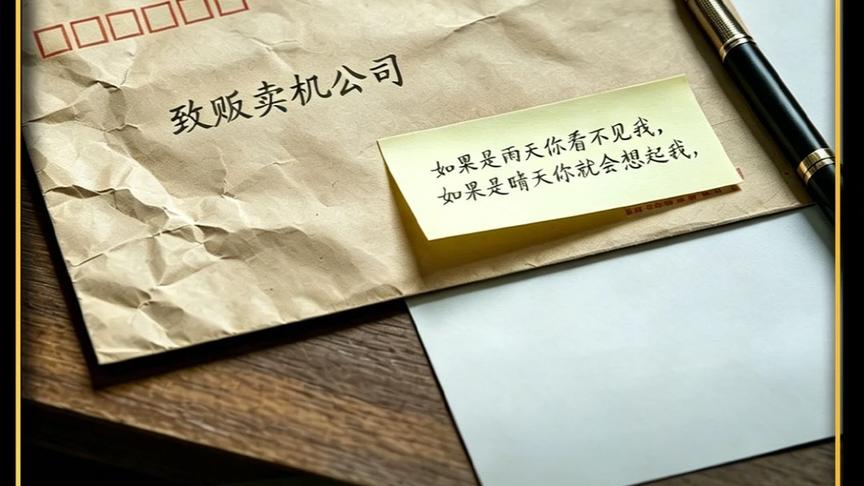 致贩卖机公司
如果是雨天你看不见我，
如果是晴天你就会想起我，